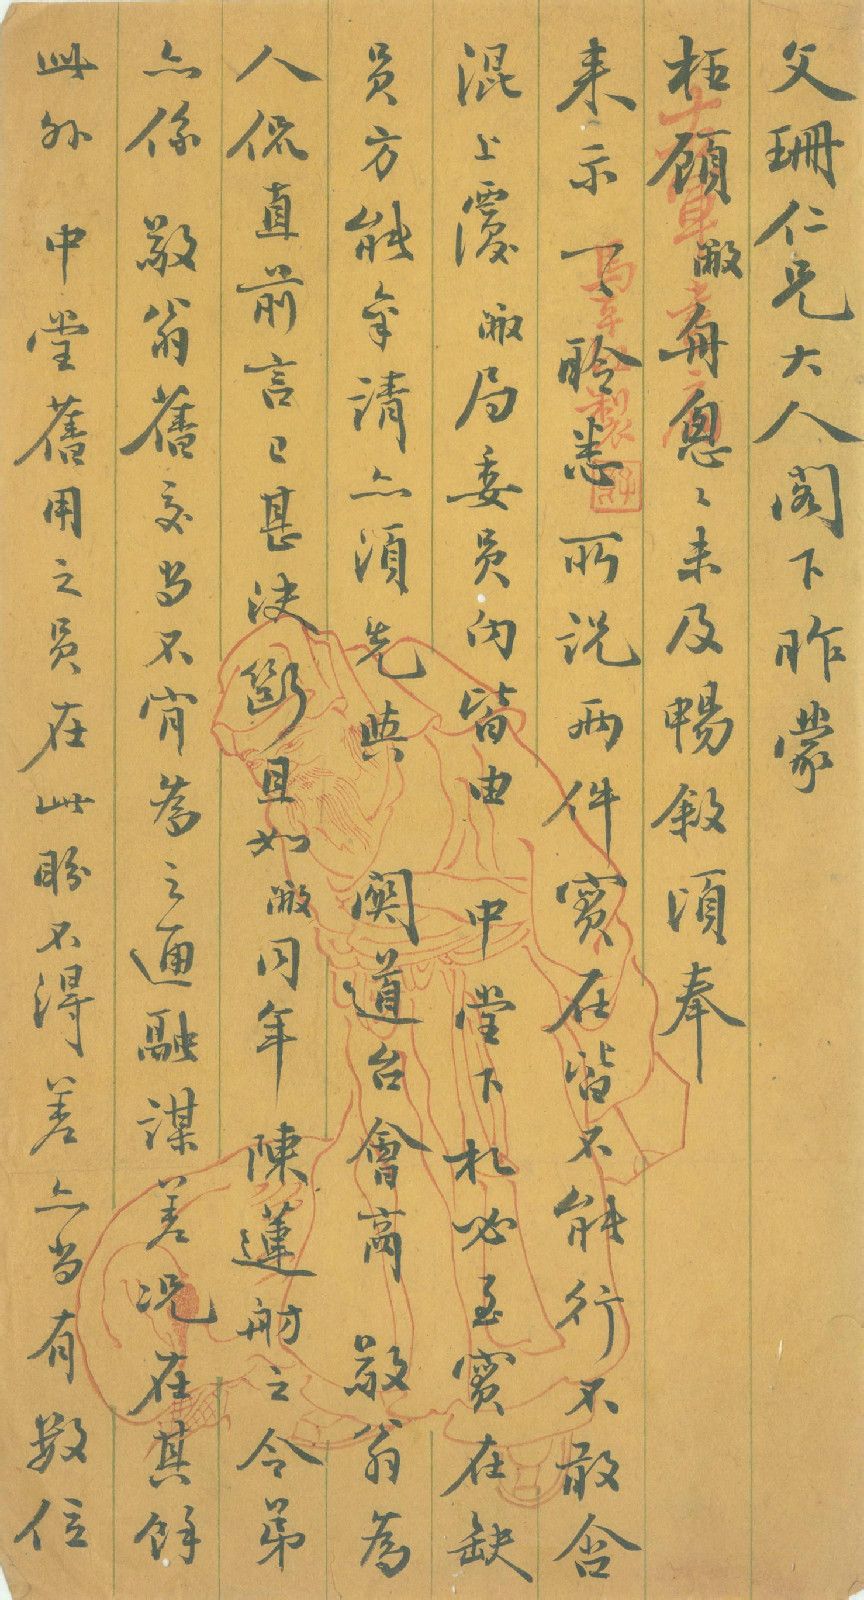 文珊仁兄大人閣下昨蒙
枉顧敝舟匆匆未及暢敘頃奉
來示一一聆悉所說兩件實在皆不能行不敢含
混上覆敝局委員內皆由 中堂下札必至實在缺
員方能拿請亦須先與 關道台會商 敬翁為
人侃直前言已甚決斷且如敝同年 陳蓮舫之令弟
亦係 敬翁舊交尚不肯為之通融謀差況在其餘
此外 中堂舊用之員在此盼不得差亦尚有數位